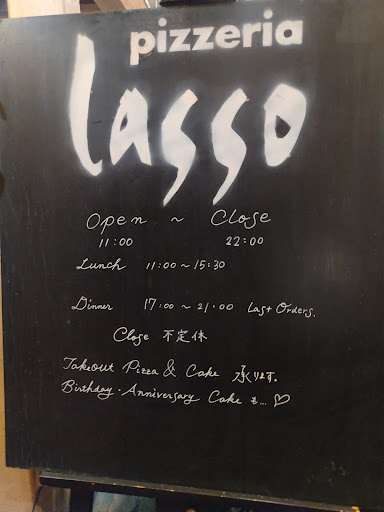 pizzeria
Lasso
Open ~ Close
11:00 22:00
Lunch 11:00~15:30
Dinner 17:00~21:00 Last Orders.
Close 不定休
Takeout Pizza & Cake 承ります。
Birthday・Anniversary Cake も...♡